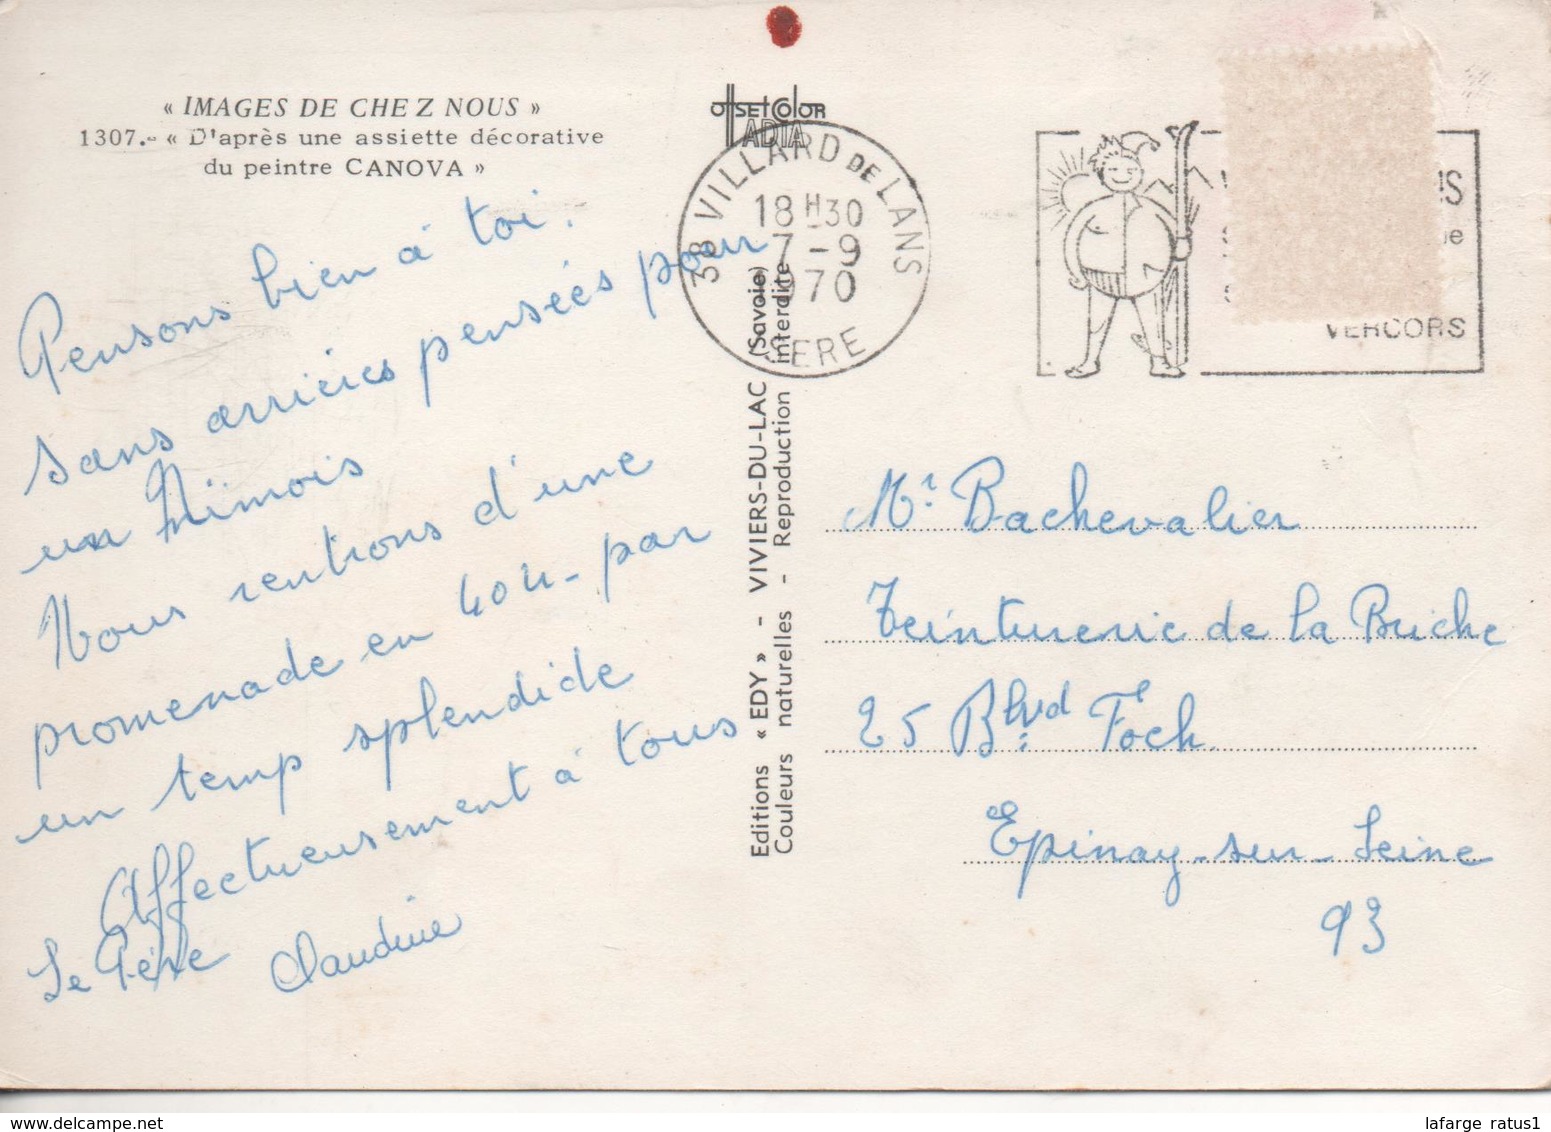 « IMAGES DE CHEZ NOUS »
1307.- « D'après une assiette décorative
du peintre CANOVA »
Pensons bien à toi.
sans arrières pensées pour
un Nîmois
Nous rentrons d'une
promenade en par
un temp splendide
Affectueusement à tous
Le Père Claudine
offset color
ADIA
Editions « EDY » - VIVIERS-DU-LAC (Savoie)
Couleurs naturelles - Reproduction interdite
38 VILLARD DE LANS
18H30
7-9
1970
ISERE
VERCORS
Mr Bachevalier
Teinturerie de la Briche
25 Blvd Foch
Epinay-sur-Seine
93
lafarge ratus1